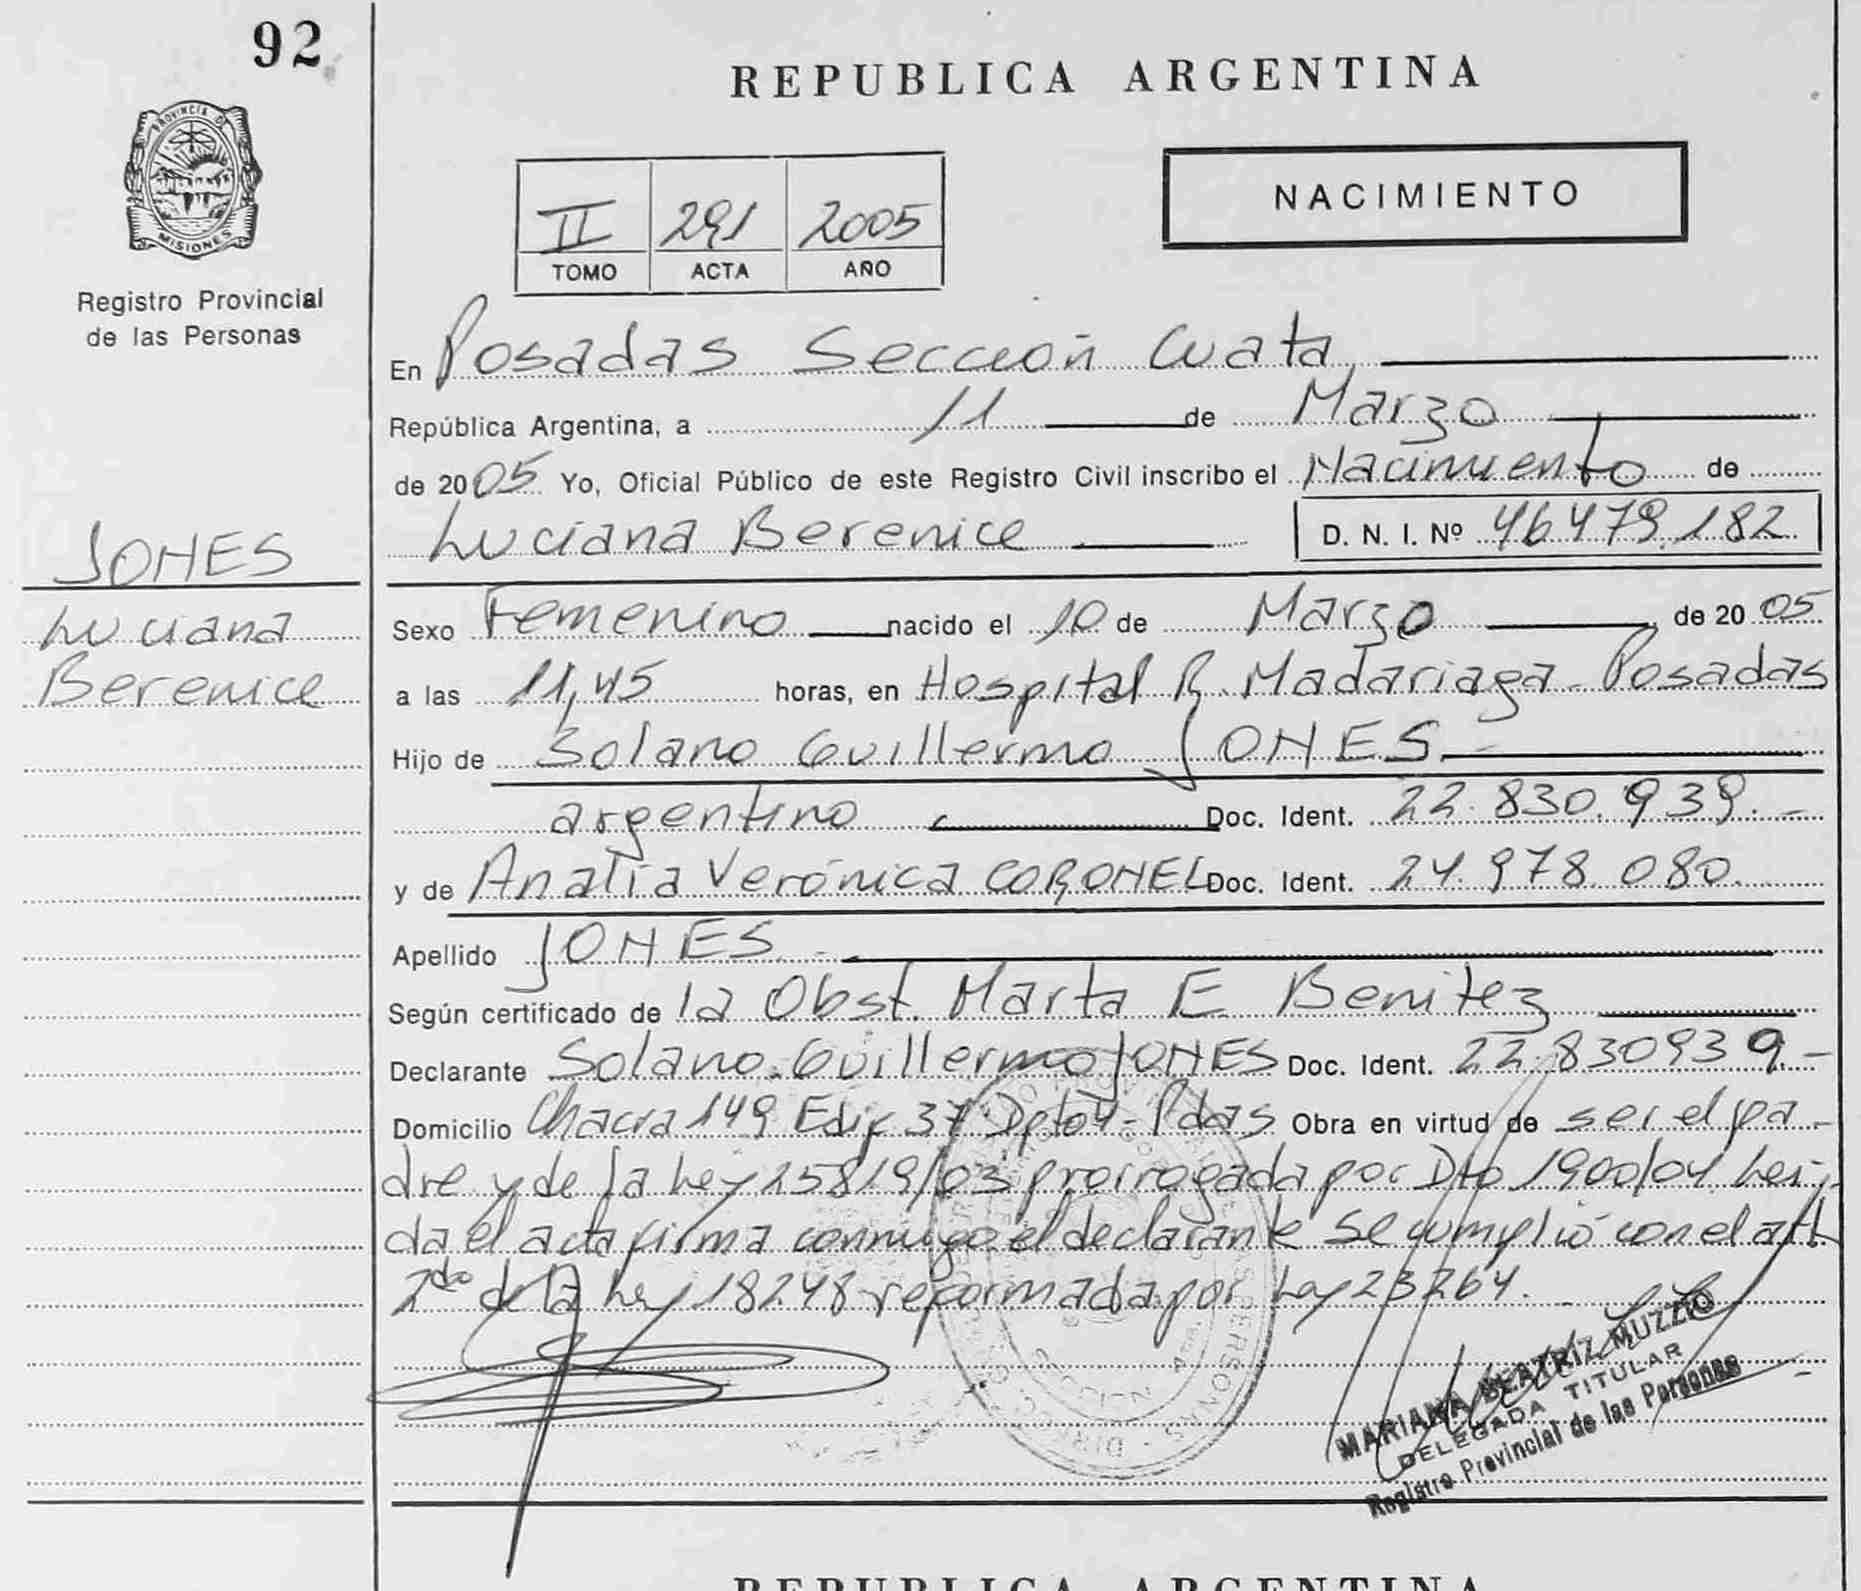 92
PROVINCIA DE
MISIONES
Registro Provincial
de las Personas
JONES
Luciana
Berenice
REPUBLICA ARGENTINA
NACIMIENTO
II 291 2005
TOMO ACTA AÑO
En Posadas Sección Cuata
República Argentina, a 11 de Marzo
de 2005 Yo, Oficial Público de este Registro Civil inscribo el Nacimiento de
Luciana Berenice D. N. I. Nº 46479.182
Sexo Femenino nacido el 10 de Marzo de 2005
a las 11,45 horas, en Hospital R. Madariaga - Posadas
Hijo de Solano Guillermo JONES
argentino Doc. Ident. 22.830.939.-
y de Analía Verónica CORONEL Doc. Ident. 24.978.080.
Apellido JONES.-
Según certificado de la Obst. Marta E Benitez
Declarante Solano Guillermo JONES Doc. Ident. 22.830939.-
Domicilio Chacra 149 Edif 37 Dpto 4 - Pdas Obra en virtud de ser el pa-
dre y de la Ley 25819/03 prorrogada por Dto 1900/04 Lei-
da el acta firma conmigo el declarante Se cumplió con el art
2do de la Ley 18248 reformada por Ley 23264.
MARIANA BEATRIZ MUZZIO
DELEGADA TITULAR
Registro Provincial de las Personas
REPUBLICA ARGENTINA